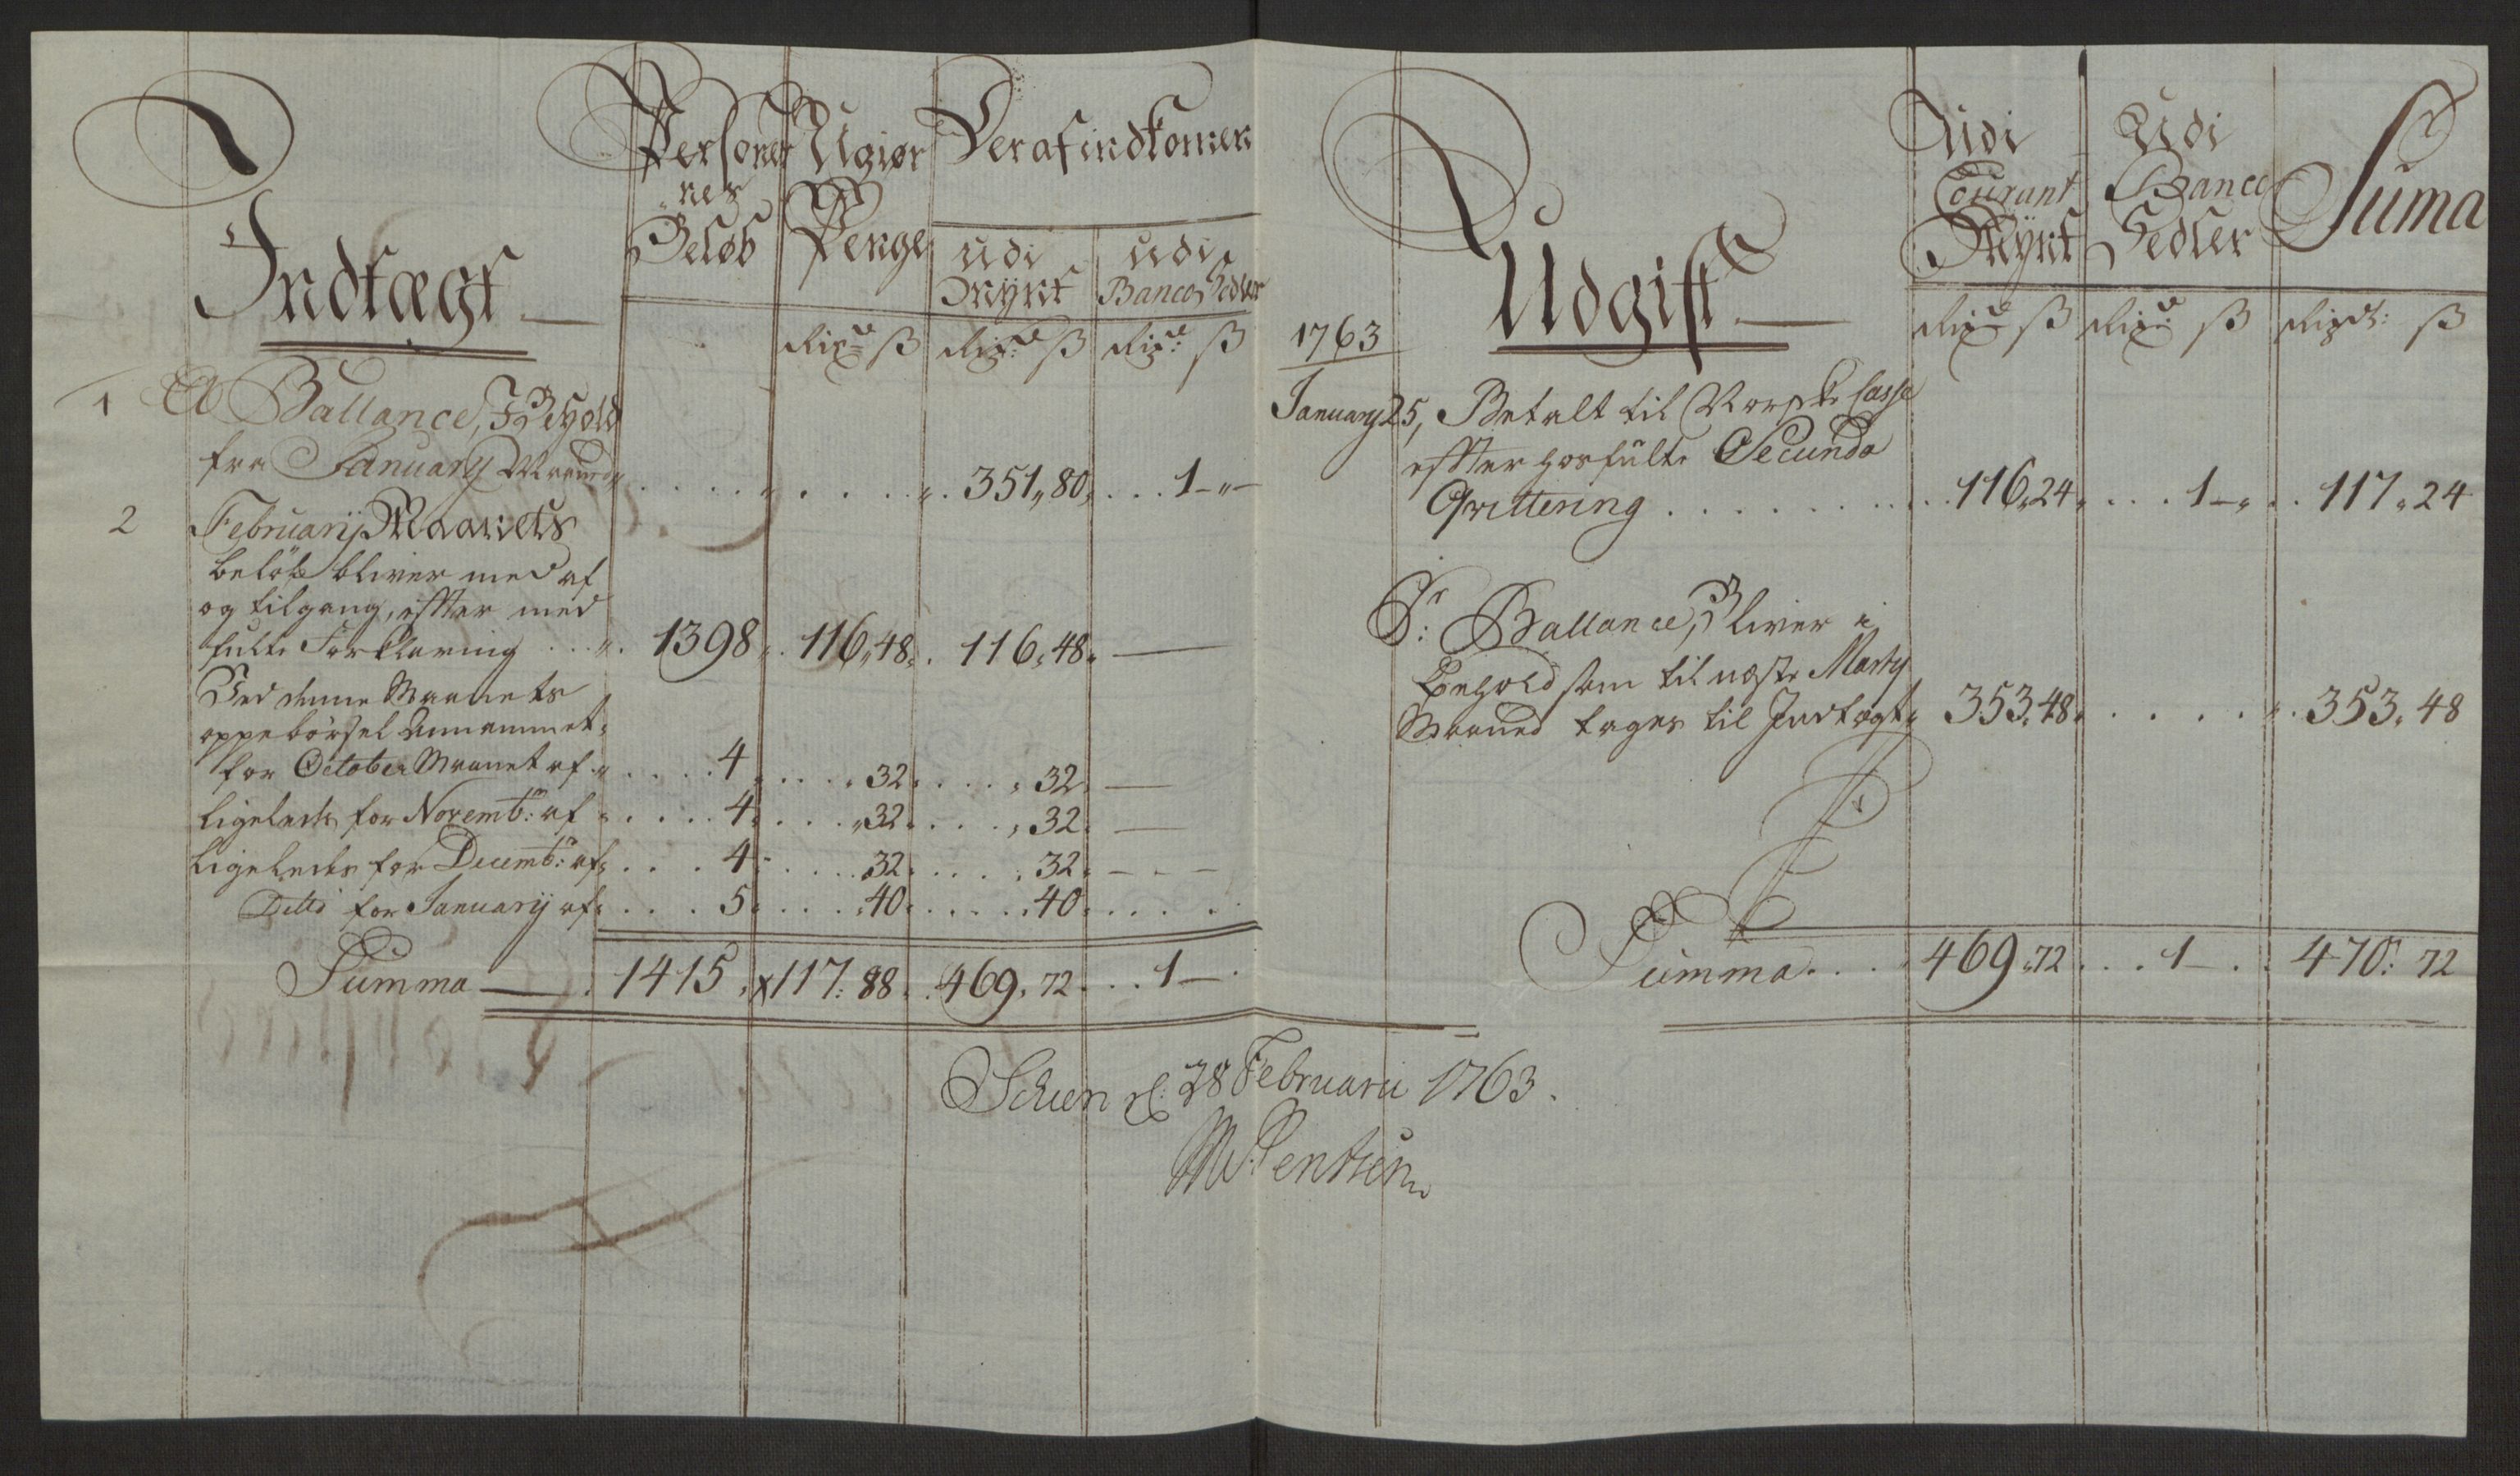 Indtægt
Personer
nes
Beløb
Ugiør
Penge
Deraf indkomen
udi
Mÿnt
udi
Banco Sedler
Rixd ß
Rixd: ß
Rixd: ß
1 A Ballance, I Behold
fra January Maaned
. . . . . . . . 351,, 80,, . . . 1 – " –
2 Februarij Maanets
beløb bliver med af
og tilgang, effter med
fulte Forklaring . . . 1398 . . 116,, 48 . . 116,, 48 —
Ved denne Maanets
oppebørsel Annammet,
for October Maanet af . . . . 4 . . . . 32 . . . . 32 —
ligeleds for Novembr: af . . . . 4 . . . . 32 . . . . 32 —
ligeledes for Decembr: af . . . 4 . . . . 32 . . . . 32 – – –
Ditto for Januarij af . . . 5 . . . . 40 . . . . 40 . . . .
Summa — 1415 . x 117: 88 . . 469, 72 . . . 1 —
Udgift
Udi
Courant
Mÿnt
Udi
Banco
Sedler
Suma
Rixd ß
Rixd ß
Rixdl: ß
1763
January 25, Betalt til Norske Casse
effter hosfulte Secunda
Qvittering . . . . . . . . 116,, 24 . . . 1 – . . 117 " 24
Pr: Ballance, Bliver i
Behold som til næste Marty
Maaned tages til Indtægt 353, 48 . . . . . 353, 48
Summa . . . 469 " 72 . . . 1 – . . 470: 72
Scheen d: 28 Februarii 1763.